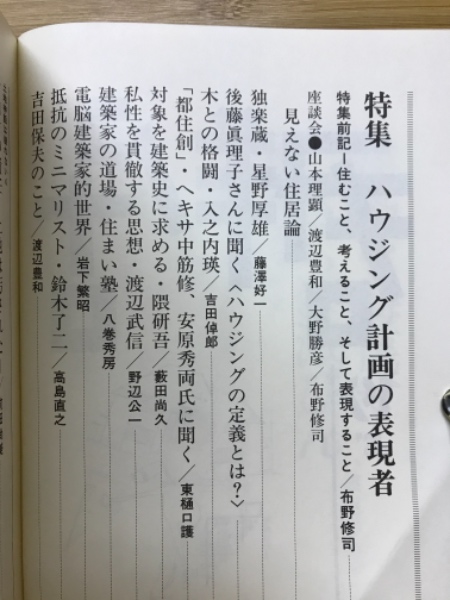 特集 ハウジング計画の表現者
特集前記ー住むこと、考えること、そして表現すること／布野修司
座談会●山本理顕／渡辺豊和／大野勝彦／布野修司
見えない住居論
独楽蔵・星野厚雄／藤澤好一
後藤眞理子さんに聞く〈ハウジングの定義とは?〉
木との格闘・入之内瑛／吉田倬郎
「都住創」・ヘキサ中筋修、安原秀両氏に聞く／東樋口護
対象を建築史に求める・隈研吾／藪田尚久
私性を貫徹する思想・渡辺武信／野辺公一
建築家の道場・住まい塾／八巻秀房
電脳建築家的世界／岩下繁昭
抵抗のミニマリスト・鈴木了二／高島直之
吉田保夫のこと／渡辺豊和